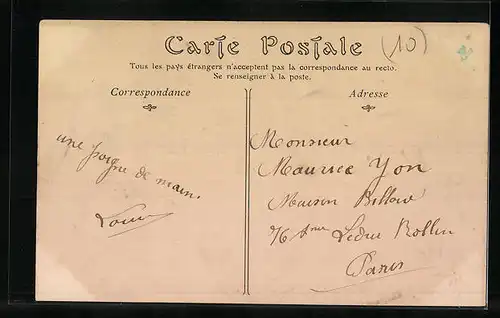 Carte Postale
(10)
Tous les pays étrangers n'acceptent pas la correspondance au recto.
Se renseigner à la poste.
Correspondance
une poigne de main.
Louis
Adresse
Monsieur
Maurice Yon
Maison
76 Ledru Rollin
Paris